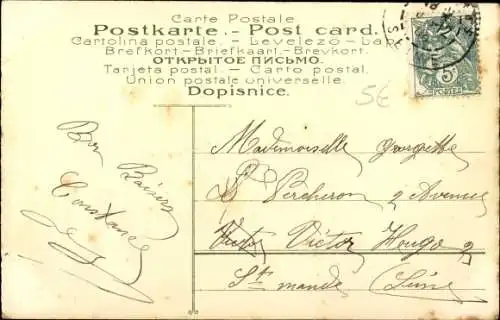 Carte Postale
Postkarte. - Post card.
Cartolina postale. - Levelező-Lap
Brefkort-Briefkaart.-Brevkort.
ОТКРЫТОЕ ПИСЬМО.
Tarjeta postal. - Carto postal.
Union postale universelle.
Dopisnice.
5€
Bon Baiser
Constance
Mademoiselle Georgette
Percheron 2 Avenue
Victor Victor Hougo 2
St mandé (Seine)
5
POSTES